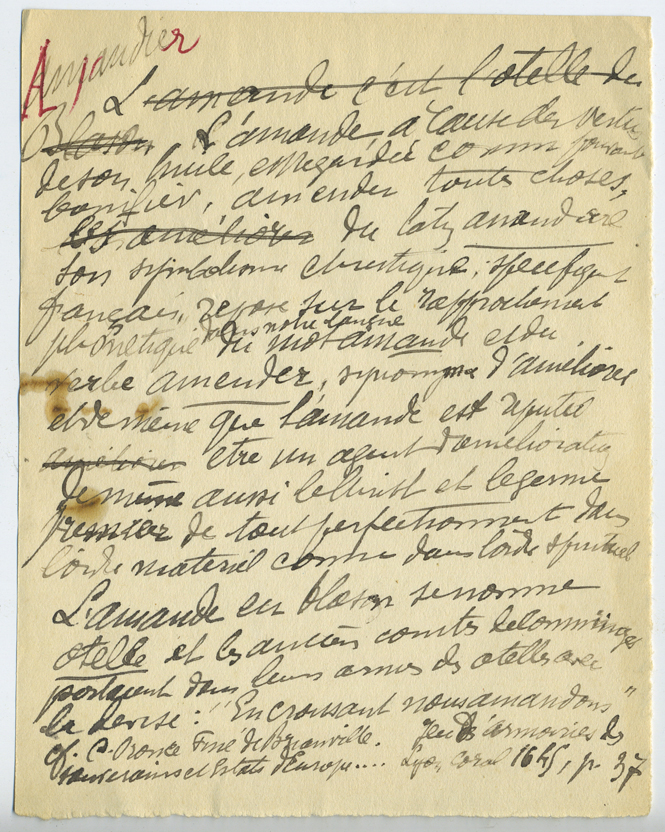 Amandier
L'amande c'est l'otelle du
blason. L'amande, à cause des vertus
de son huile, est regardée comme pouvant
bonifier, amender toutes choses,
les améliorer du latin amandare
son symbolisme christique, spécifiquet
français, repose sur le rapprochement
phonétique dans notre langue
du mot amande et du
verbe amender, synonyme d'améliorer
et de même que l'amande est réputée
améliorer etre un agent d'amélioration
de même aussi le Christ est le germe
premier de tout perfectionnement dans
l'ordre matériel comme dans l'ordre spirituel
L'amande en blason se nomme
otelle et les anciens comtes de Comminges
portaient dans leurs armes des otelles avec
la devise : "En croissant nous amandons"
cf. C. Oronce Fine de Brianville. Jeu d'armoiries des
souverains et Estats d'Europe.... Lyon, Coral 1665, p. 37